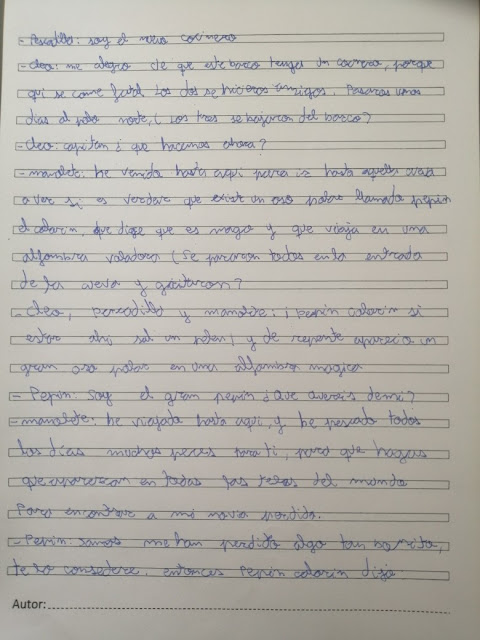 - Pescadilla: soy el nuevo cocinero
- cleo: me alegro de que este barco tenga un cocinero, porque
qui se come fatal Los dos se hicieron amigos. Pasaron unos
dias al polo norte, ( Los tres se bajaron del barco?
- cleo: capitan ¿ que hacemos ahora?
- manolete: he venido hasta aqui para ir hasta aquella cueva
a ver si es verdad que existe un oso polar llamado pepin
el colorin, que dise que es mago y que viaja en una
alfombra voladora ( Se pararon todos en la entrada
de la cueva y gritaron?
- Cleo, Pescadilla y manolete: ¡ Pepin colorin si
estas ahi sal un poken! y de repente aparecio un
gran oso polar en una alfombra magica
- Pepin: Soy el gran pepin ¿ Que quereis de mi?
- manolete: he viajado hasta aqui, y he pescado todos
los días muchos peces para ti, para que hagas
que aparezcan en todas las teles del mundo
Para encontrar a mi novia perdida.
- Pepin: me han perdido algo tan bonito,
te lo consedere. entonces Pepin colorin dijo
Autor: